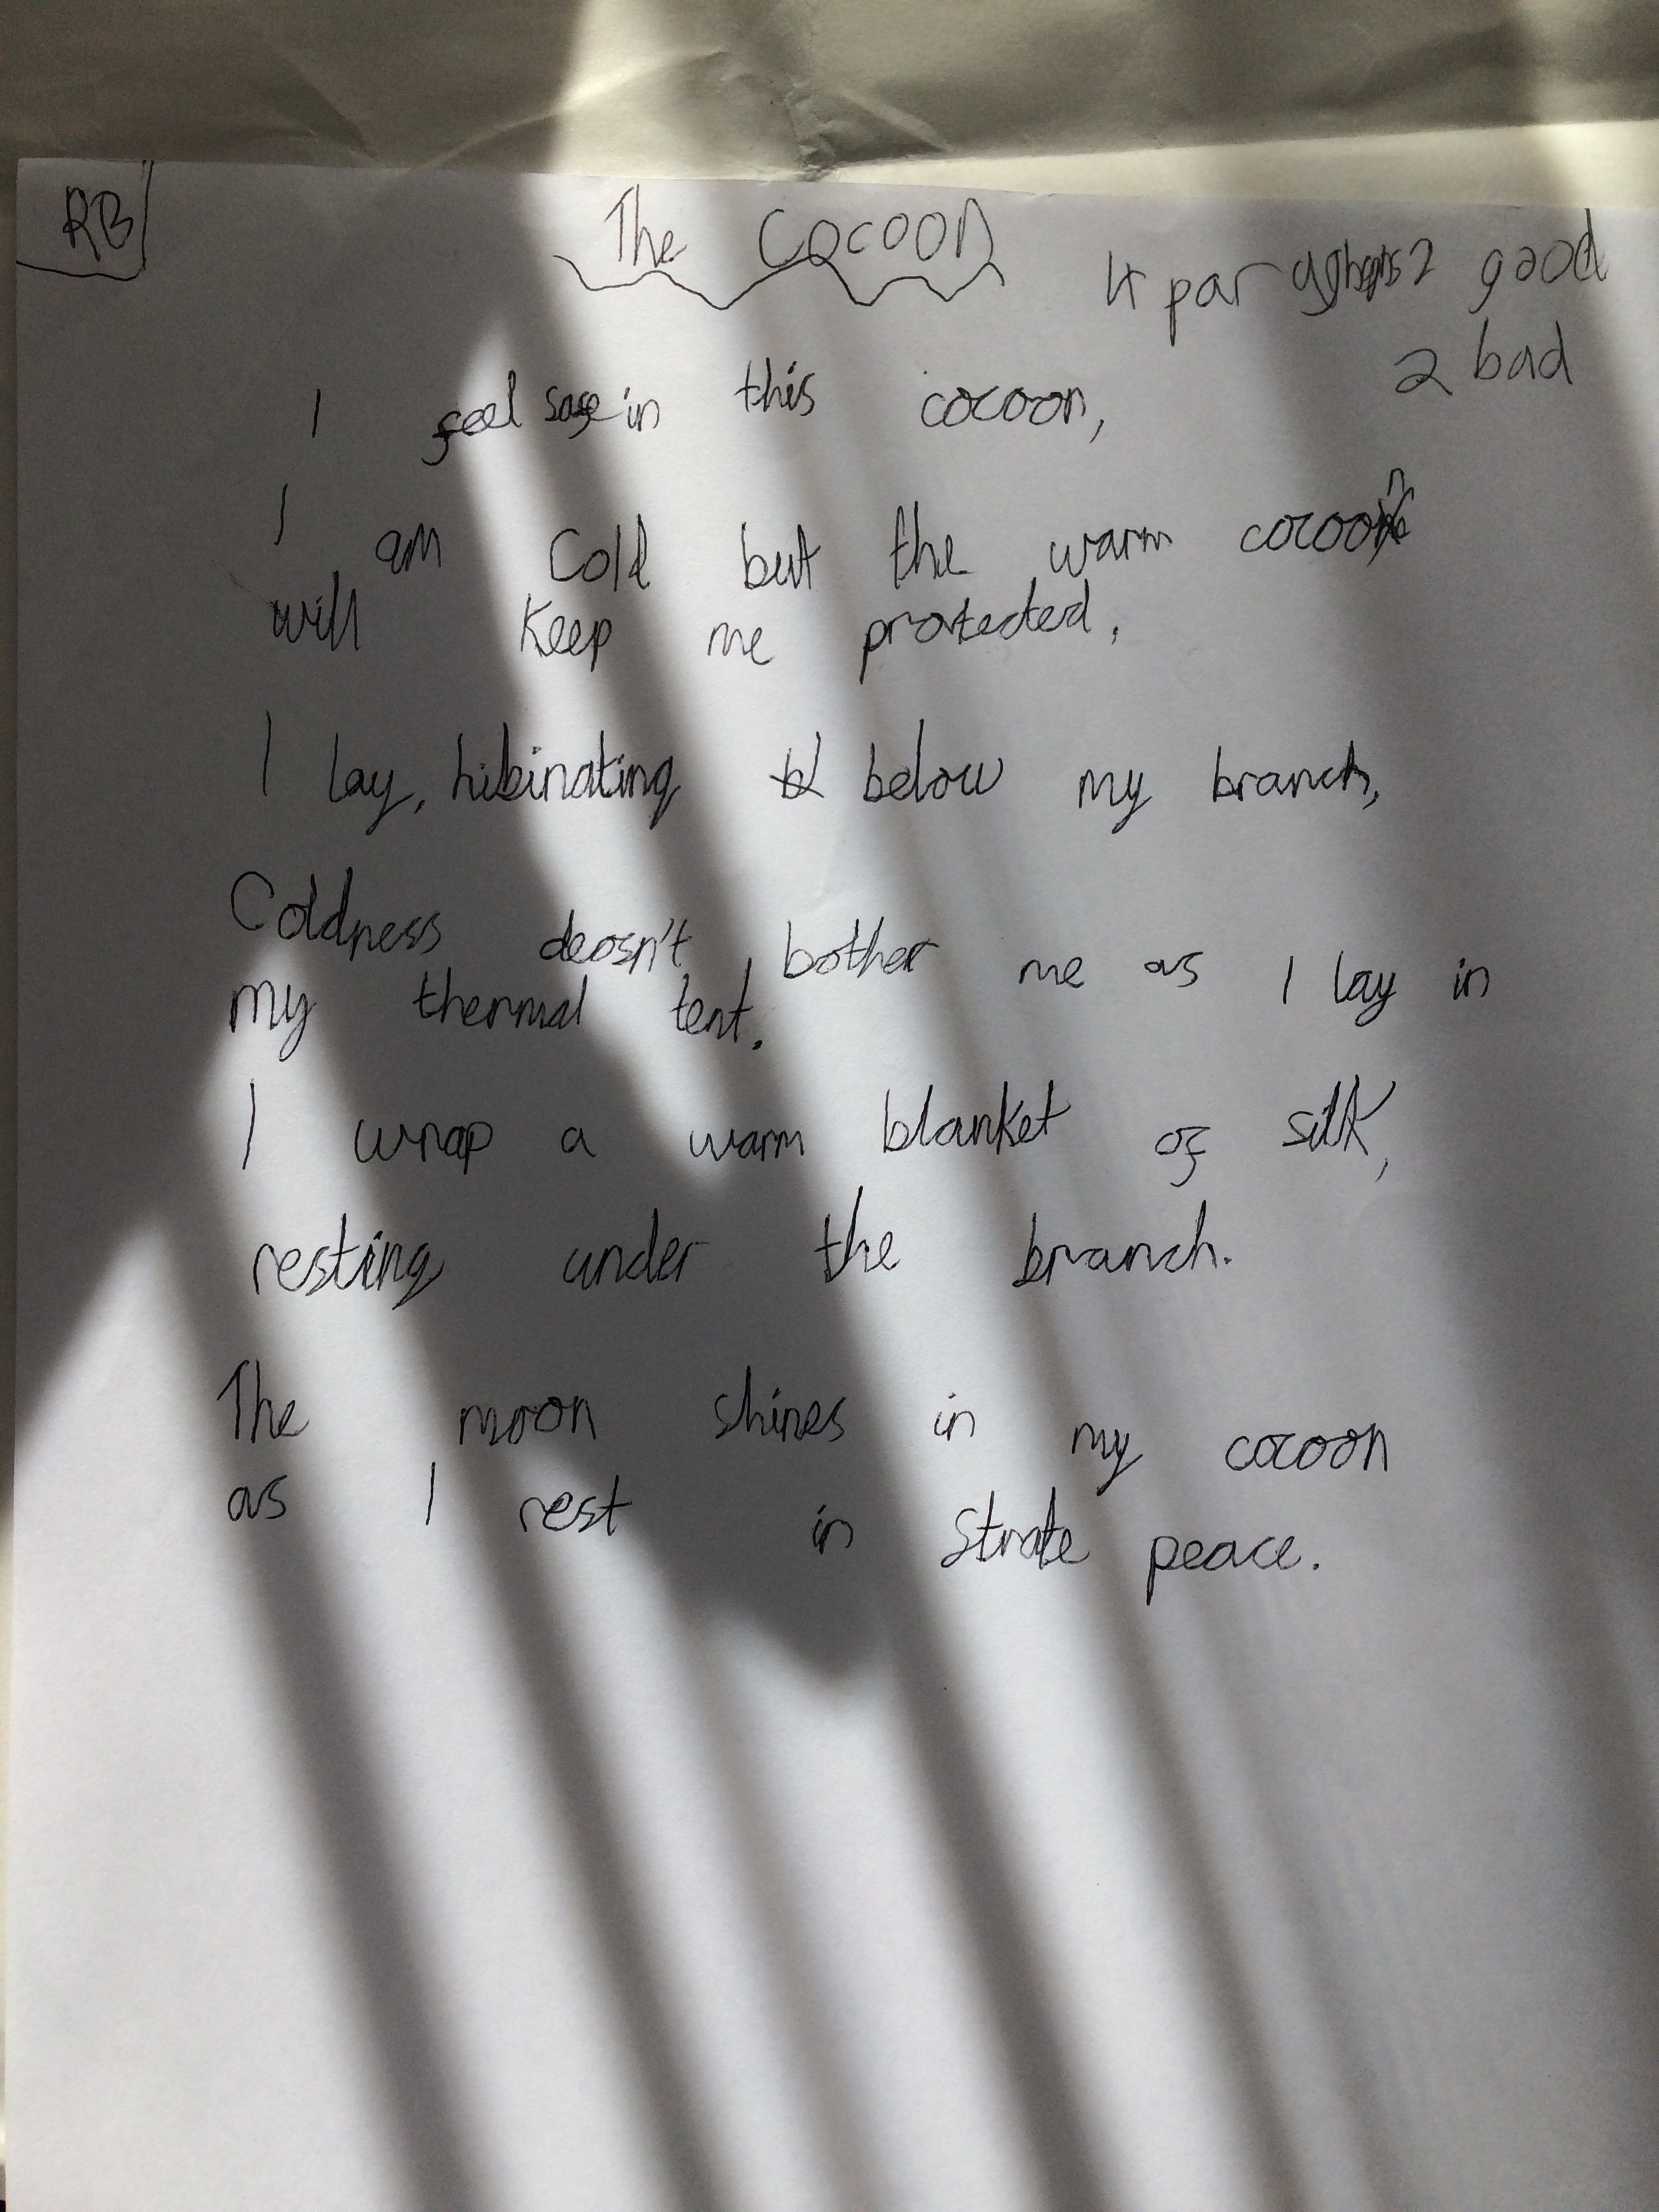 RB
The Cocoon
4 paraghaphs 2 good
2 bad
I feel safe in this cocoon,
I am Cold but the warm cocoon
will keep me protected.
I lay, hibinating below my branch,
Coldness deosn't bother me as I lay in
my thermal tent.
I wrap a warm blanket of silk,
resting under the branch.
The moon shines in my cocoon
as I rest in strate peace.